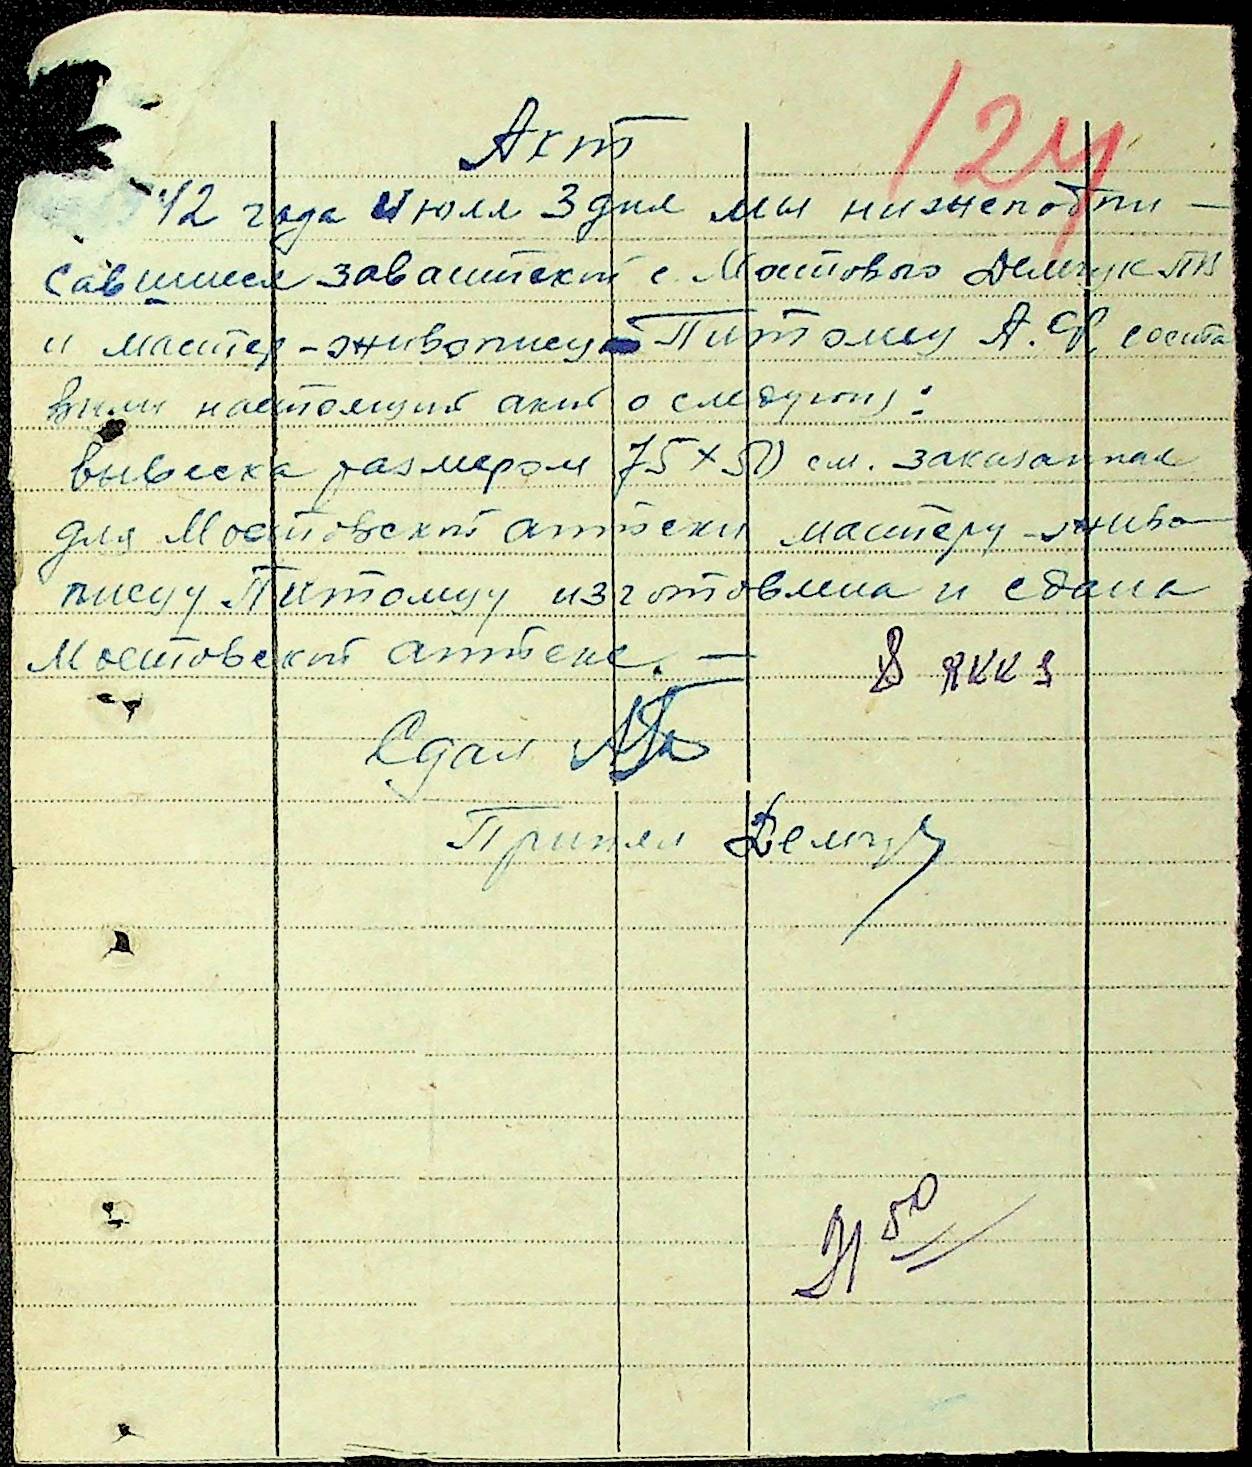 Акт
124
42 года Июля 3 дня мы нижеподпи-
савшиеся зав аптекой с. Мостового Демчук ПВ
и мастер-живописец Питомец А.Ф. соста
вили настоящий акт о следующ:
вывеска размером 75×50 см. заказанная
для Мостовской аптеки мастеру-живо-
писцу Питомцу изготовлена и сдана
Мостовской аптеке. —
Сдал
Принял Демчук
50